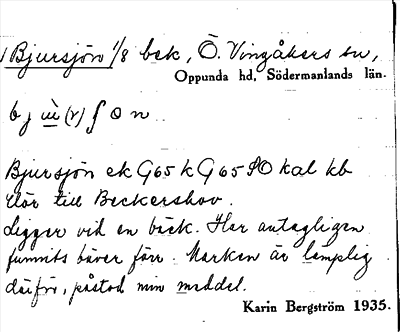 Bjursjön 1/8 bek, Ö. Vingåkers sn,
Oppunda hd, Södermanlands län.
b j ɯ̀ (r) ʃ o n
Bjursjön ek G65 k G65 SO kal kb
Hör till Beckershov.
Ligger vid en bäck. Har antagligen
funnits bäver förr. Marken är lämplig
därför, påstod min meddel.
Karin Bergström 1935.